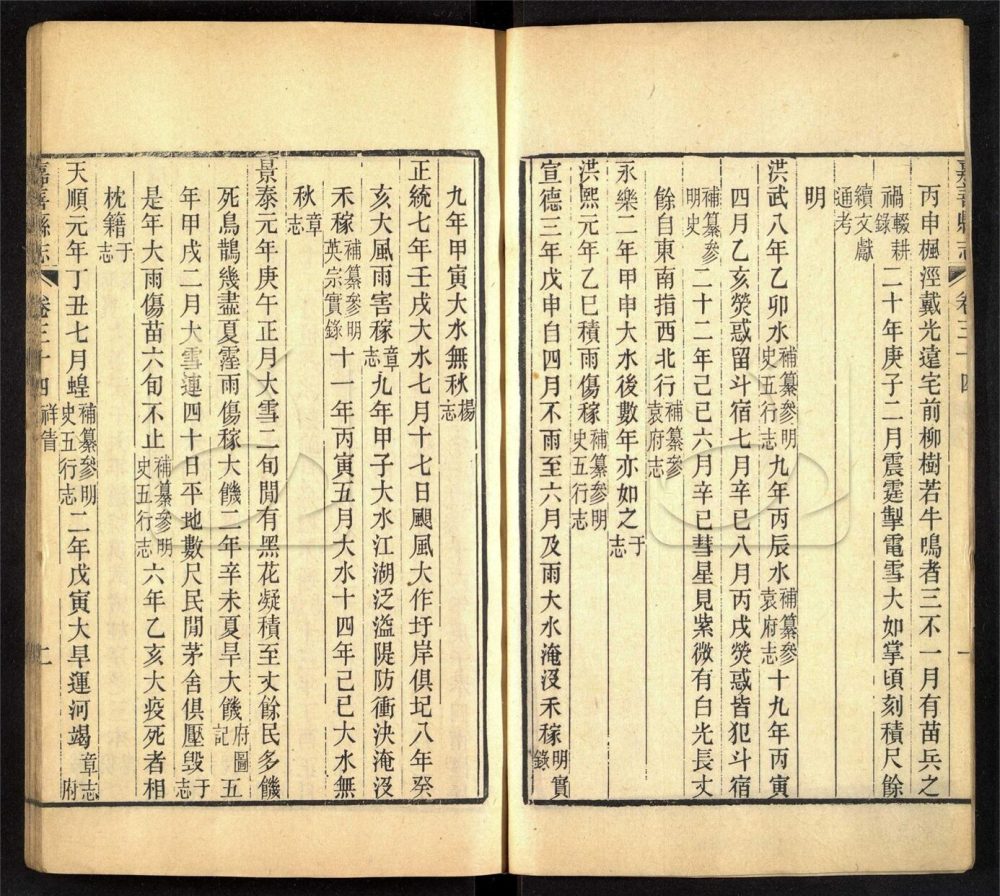 丙申楓涇戴光遠宅前柳樹若牛鳴者三不一月有苗兵之
禍輟耕錄二十年庚子二月震霆掣電雪大如掌頃刻積尺餘
續文獻通考
明
洪武八年乙卯水補纂參明史五行志九年丙辰水補纂參袁府志十九年丙寅
四月乙亥熒惑留斗宿七月辛巳八月丙戌熒惑皆犯斗宿
補纂參明史二十二年己巳六月辛巳彗星見紫微有白光長丈
餘自東南指西北行補纂參袁府志
永樂二年甲申大水後數年亦如之于志
洪熙元年乙巳積雨傷稼補纂參明史五行志
宣德三年戊申自四月不雨至六月及雨大水淹沒禾稼明實錄
嘉善縣志
卷三十四
一
九年甲寅大水無秋楊志
正統七年壬戌大水七月十七日颶風大作圩岸俱圮八年癸
亥大風雨害稼章志九年甲子大水江湖泛溢隄防衝決淹沒
禾稼補纂參明英宗實錄十一年丙寅五月大水十四年己巳大水無
秋章志
景泰元年庚午正月大雪二旬閒有黑花凝積至丈餘民多饑
死鳥鵲幾盡夏霪雨傷稼大饑二年辛未夏旱大饑府圖記五
年甲戌二月大雪連四十日平地數尺民閒茅舍俱壓毀于志
是年大雨傷苗六旬不止補纂參明史五行志六年乙亥大疫死者相
枕籍于志
天順元年丁丑七月蝗補纂參明史五行志二年戊寅大旱運河竭章志府
嘉善縣志
卷三十四
祥眚
二